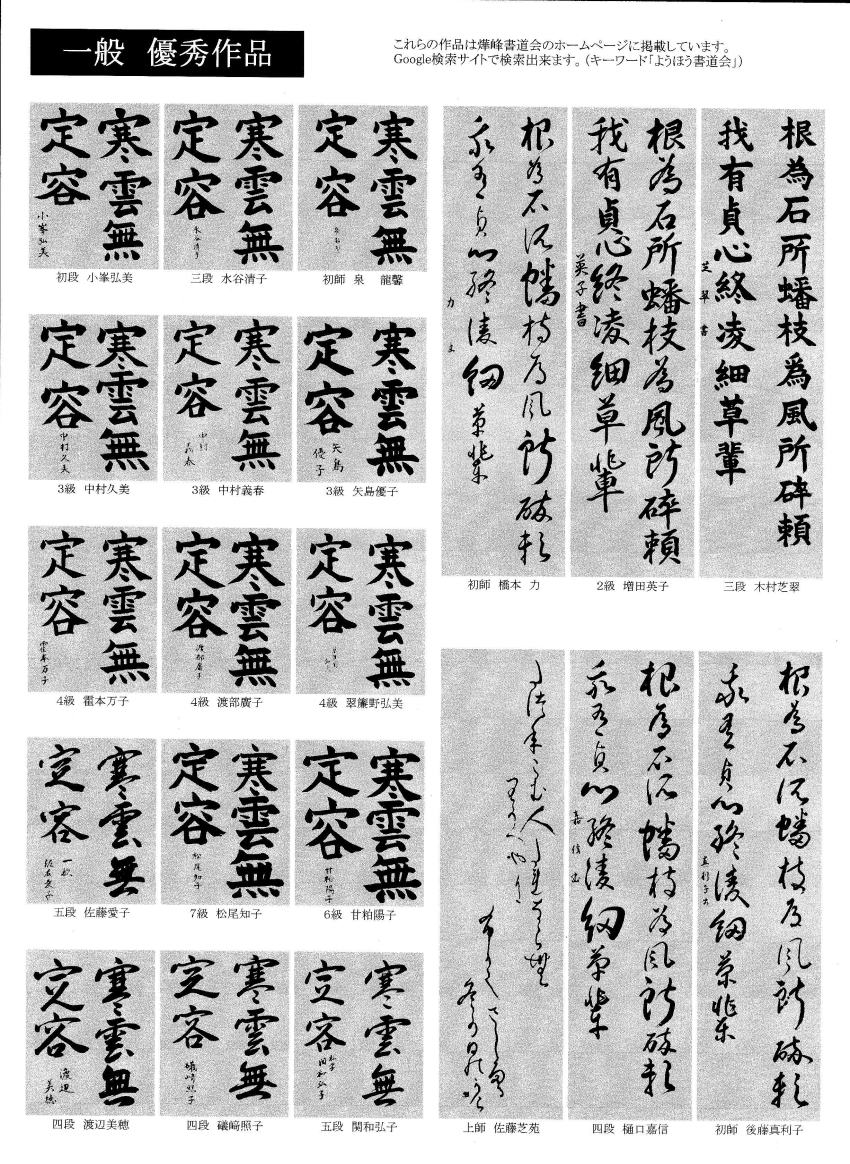 一般 優秀作品
これらの作品は燁峰書道会のホームページに掲載しています。
Google検索サイトで検索出来ます。(キーワード「ようほう書道会」)
寒雲無
定容
小峯弘美
初段 小峯弘美
寒雲無
定容
三段 水谷清子
寒雲無
定容
初師 泉 龍馨
寒雲無
定容
中村久美
3級 中村久美
寒雲無
定容
中村
義春
3級 中村義春
寒雲無
定容
矢島
優子
3級 矢島優子
寒雲無
定容
霍本万子
4級 霍本万子
寒雲無
定容
渡部廣子
4級 渡部廣子
寒雲無
定容
4級 翠簾野弘美
寒雲無
定容
五段 佐藤愛子
寒雲無
定容
松尾知子
7級 松尾知子
寒雲無
定容
甘粕陽子
6級 甘粕陽子
寒雲無
定容
渡辺
美穂
四段 渡辺美穂
寒雲無
定容
礒﨑照子
四段 礒﨑照子
寒雲無
定容
五段 関和弘子
根為石所蟠枝為風所碎頼
我有貞心終凌細草輩
力
初師 橋本 力
根為石所蟠枝為風所碎頼
我有貞心終凌細草輩
英子書
2級 増田英子
根為石所蟠枝爲風所碎頼
我有貞心終凌細草輩
芝翠書
三段 木村芝翠
上師 佐藤芝苑
根為石所蟠枝為風所碎頼
我有貞心終凌細草輩
嘉信書
四段 樋口嘉信
根為石所蟠枝為風所碎頼
我有貞心終凌細草輩
初師 後藤真利子